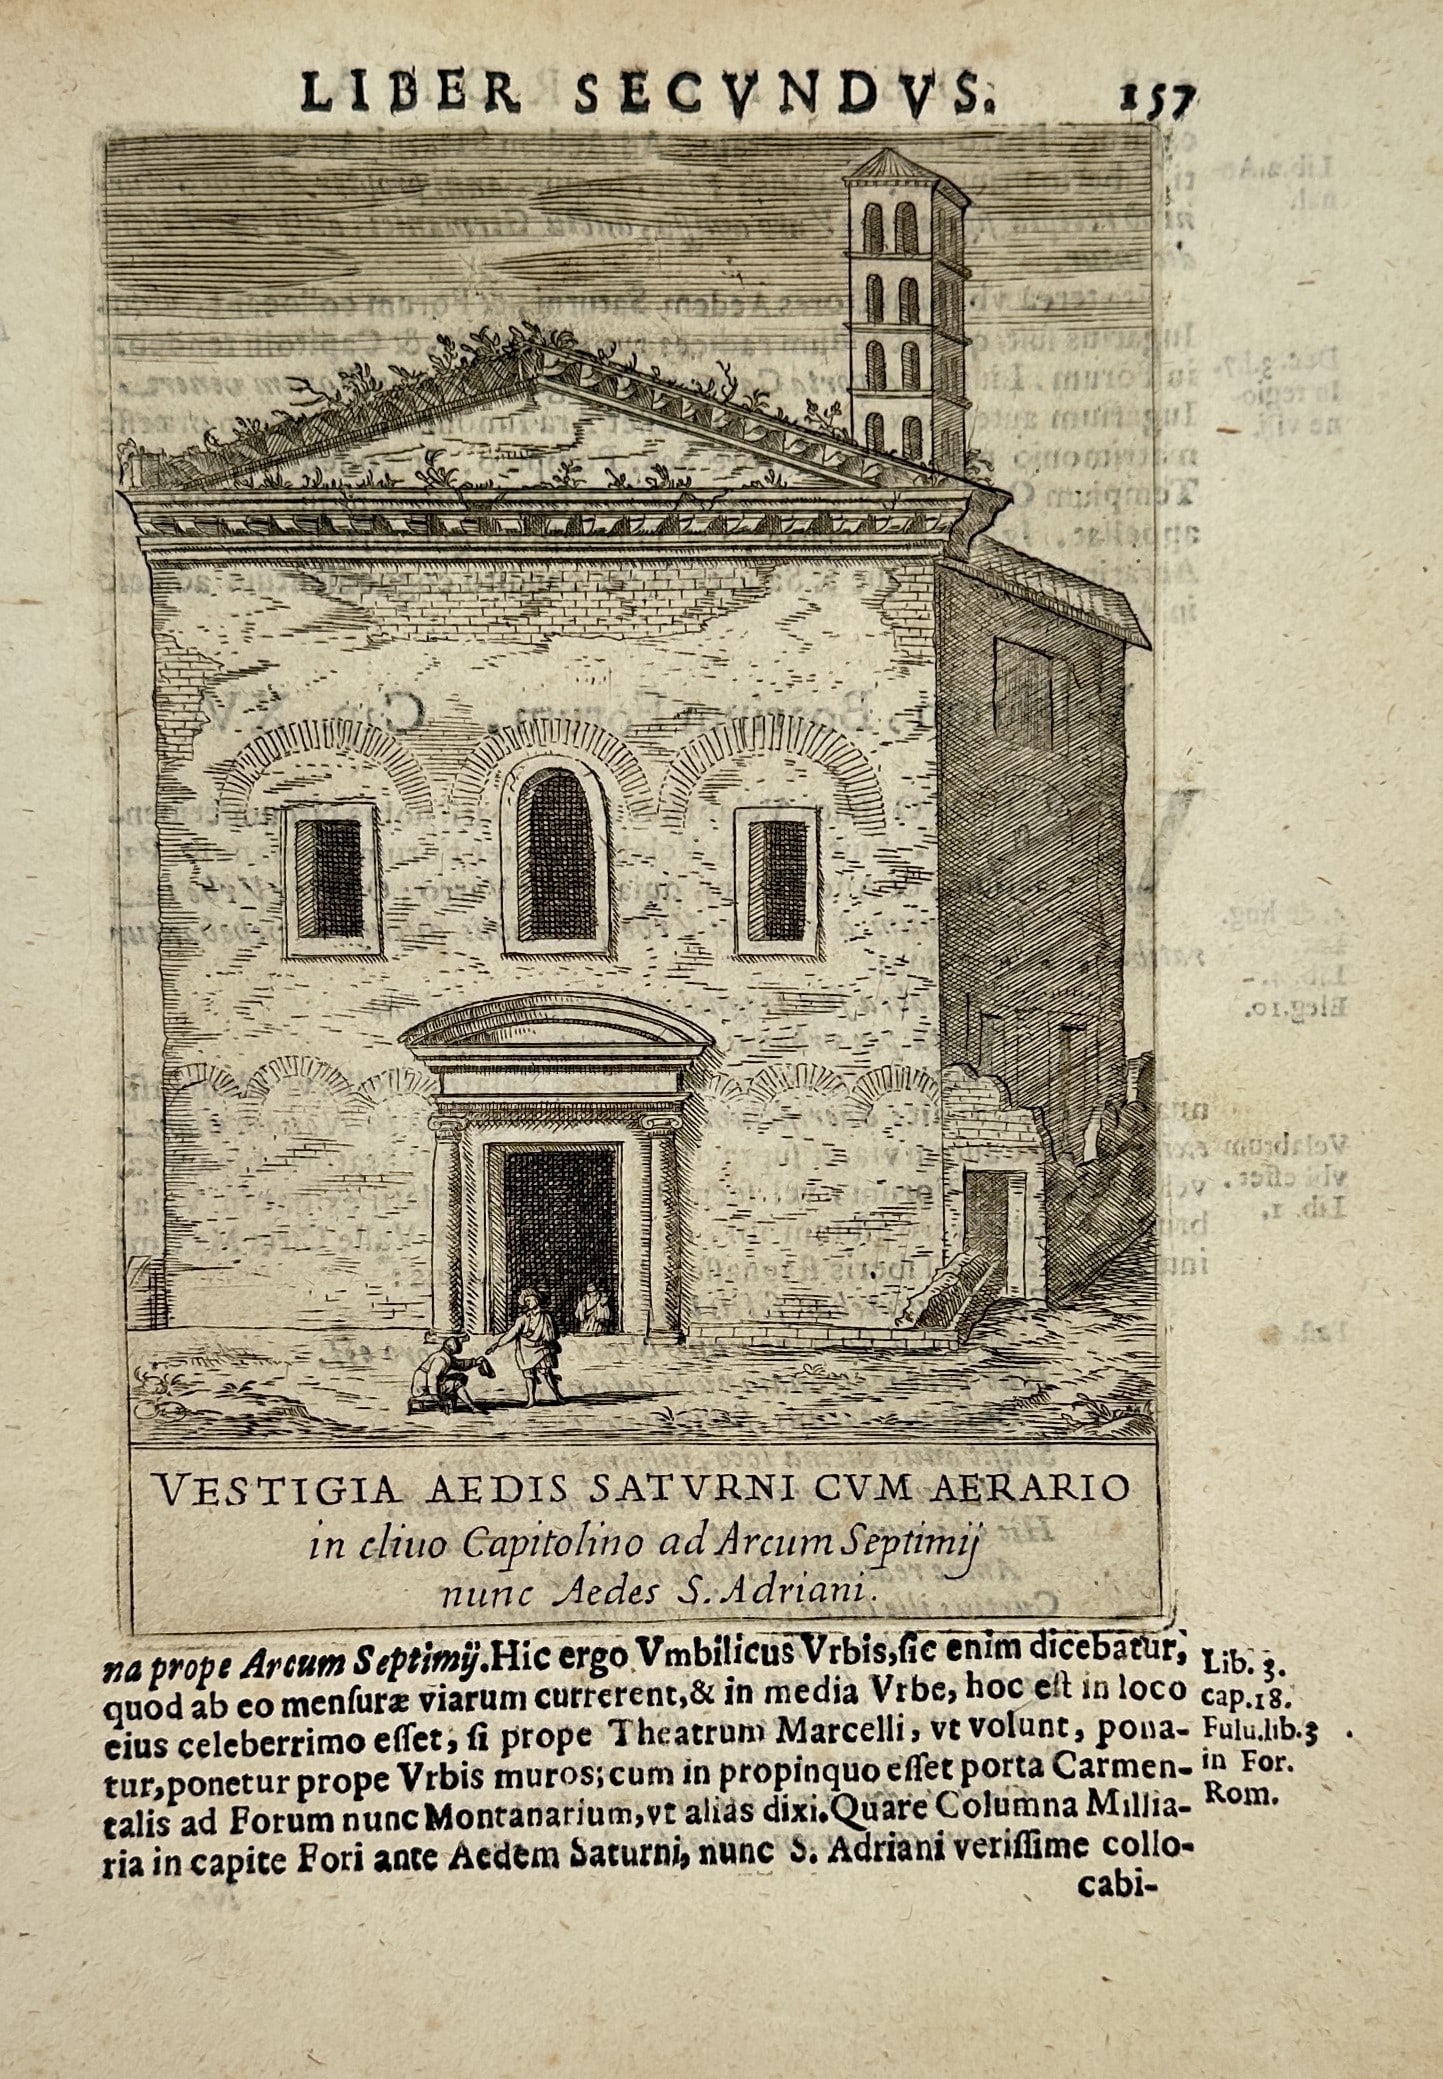 LIBER SECVNDVS. 157
VESTIGIA AEDIS SATVRNI CVM AERARIO
in cliuo Capitolino ad Arcum Septimij
nunc Aedes S. Adriani.
na prope Arcum Septimij. Hic ergo Vmbilicus Vrbis, ſic enim dicebatur,
quod ab eo menſuræ viarum currerent, & in media Vrbe, hoc eſt in loco
eius celeberrimo eſſet; ſi prope Theatrum Marcelli, vt volunt, pona-
tur, ponetur prope Vrbis muros; cum in propinquo eſſet porta Carmen-
talis ad Forum nunc Montanarium, vt alias dixi. Quare Columna Millia-
ria in capite Fori ante Aedem Saturni, nunc S. Adriani veriſſime collo-
cabi-
Lib. 3.
cap. 18.
Fulu. lib. 3
in For.
Rom.